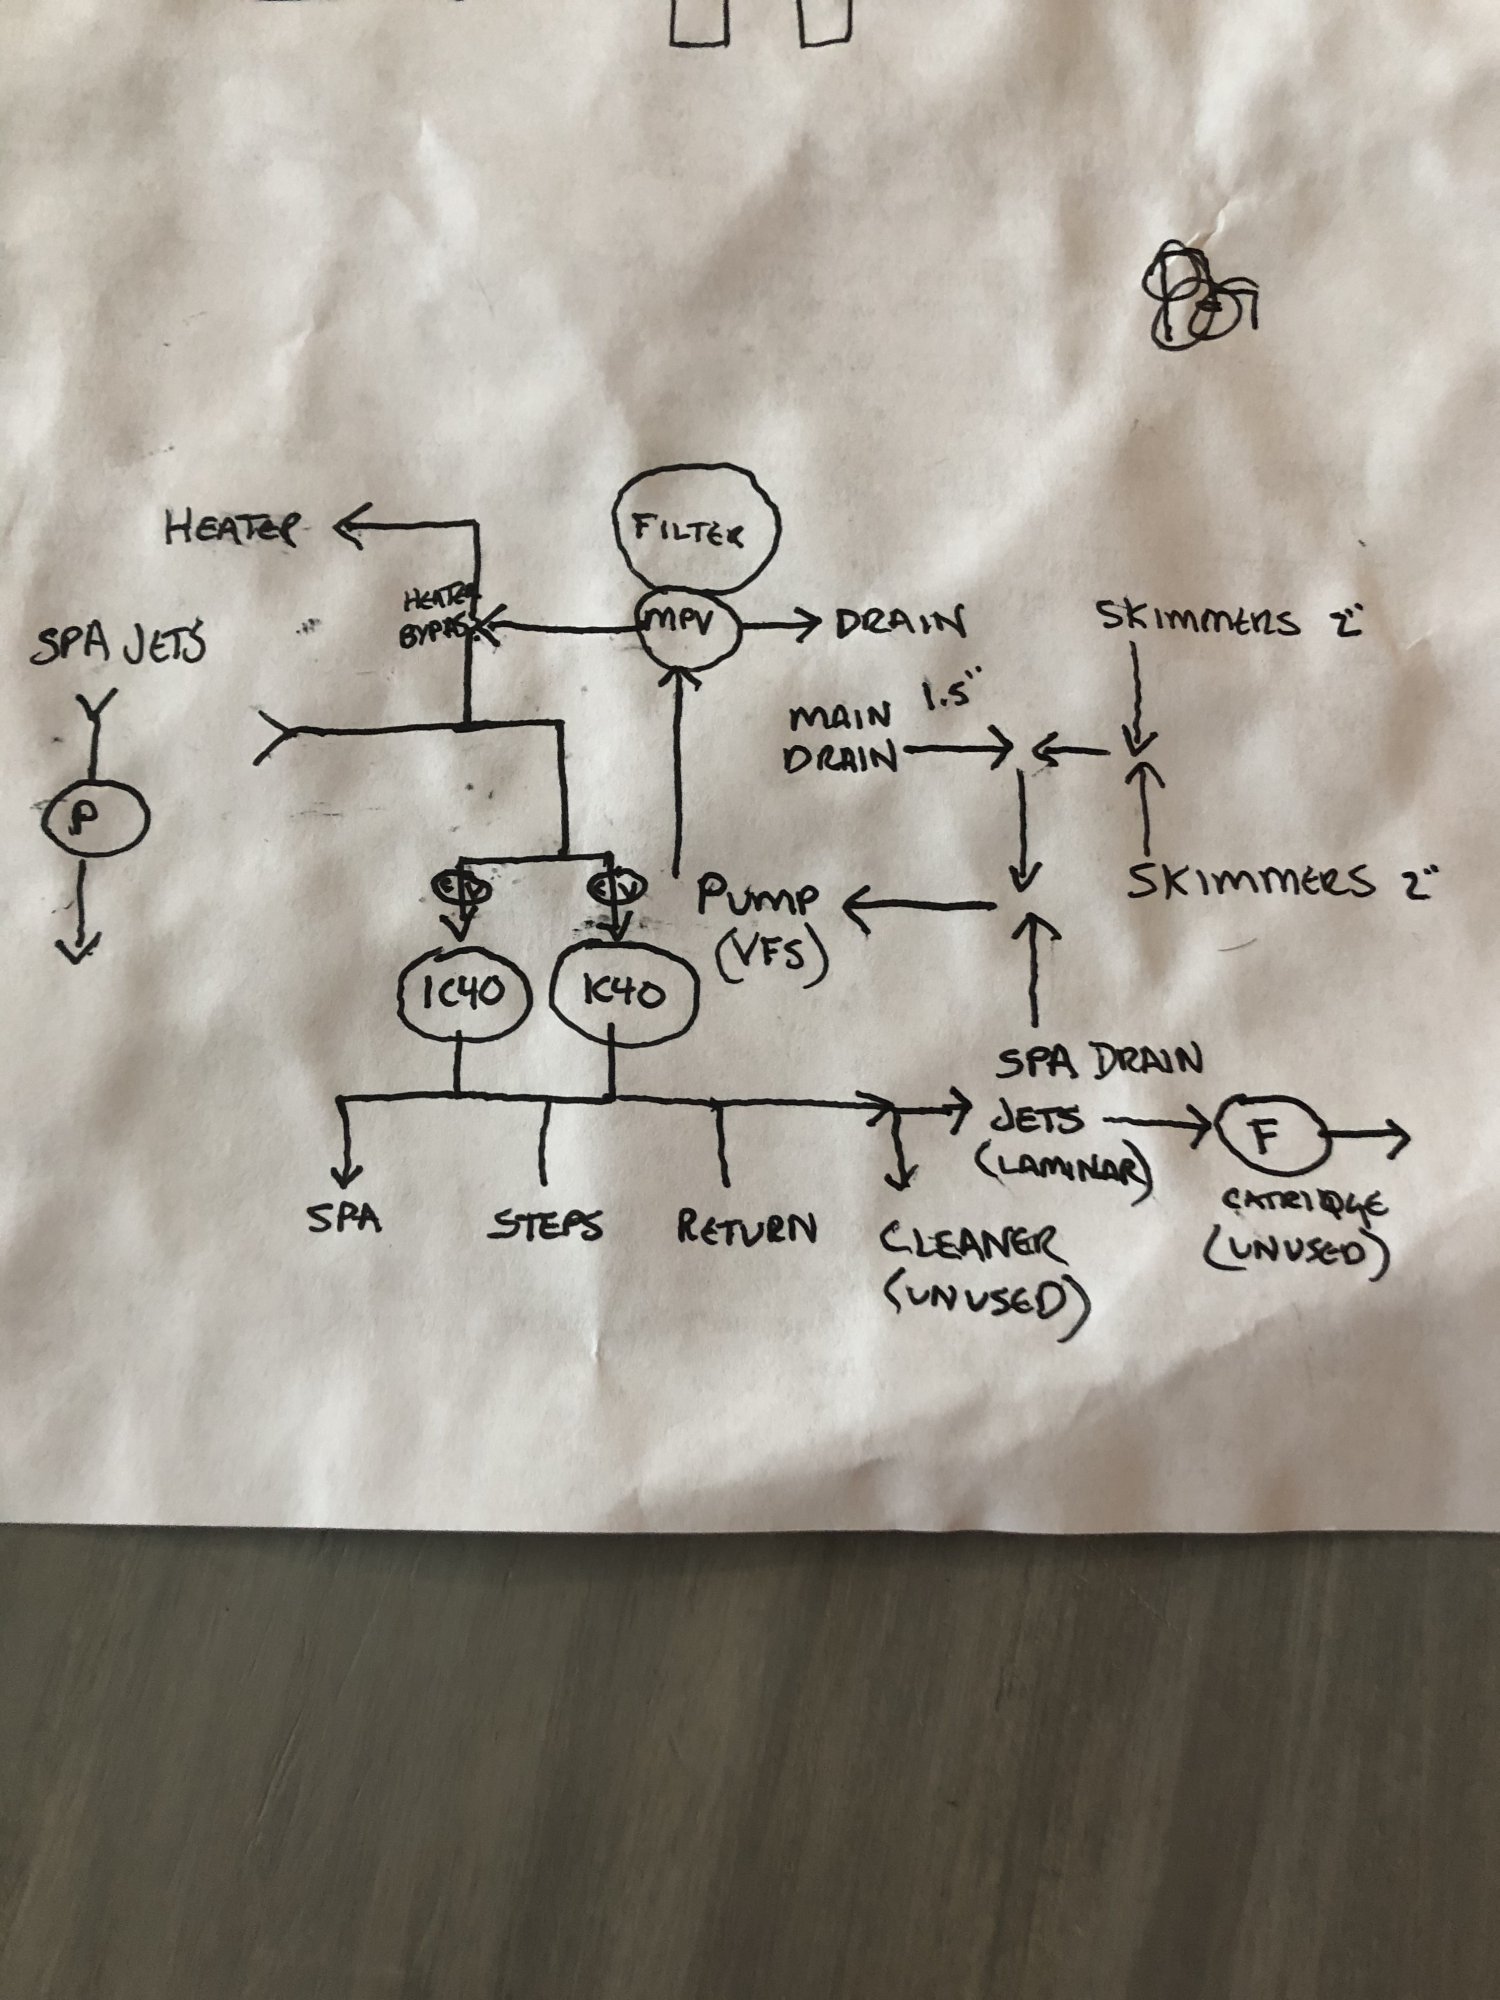 FILTER
HEATER
HEATER
BYPASS
MPV
DRAIN
SKIMMERS 2"
SPA JETS
MAIN 1.5"
DRAIN
P
SKIMMERS 2"
CV
CV
PUMP
(VFS)
IC40
IC40
SPA DRAIN
JETS
(LAMINAR)
F
CATRIDGE
(UNUSED)
SPA
STEPS
RETURN
CLEANER
(UNUSED)